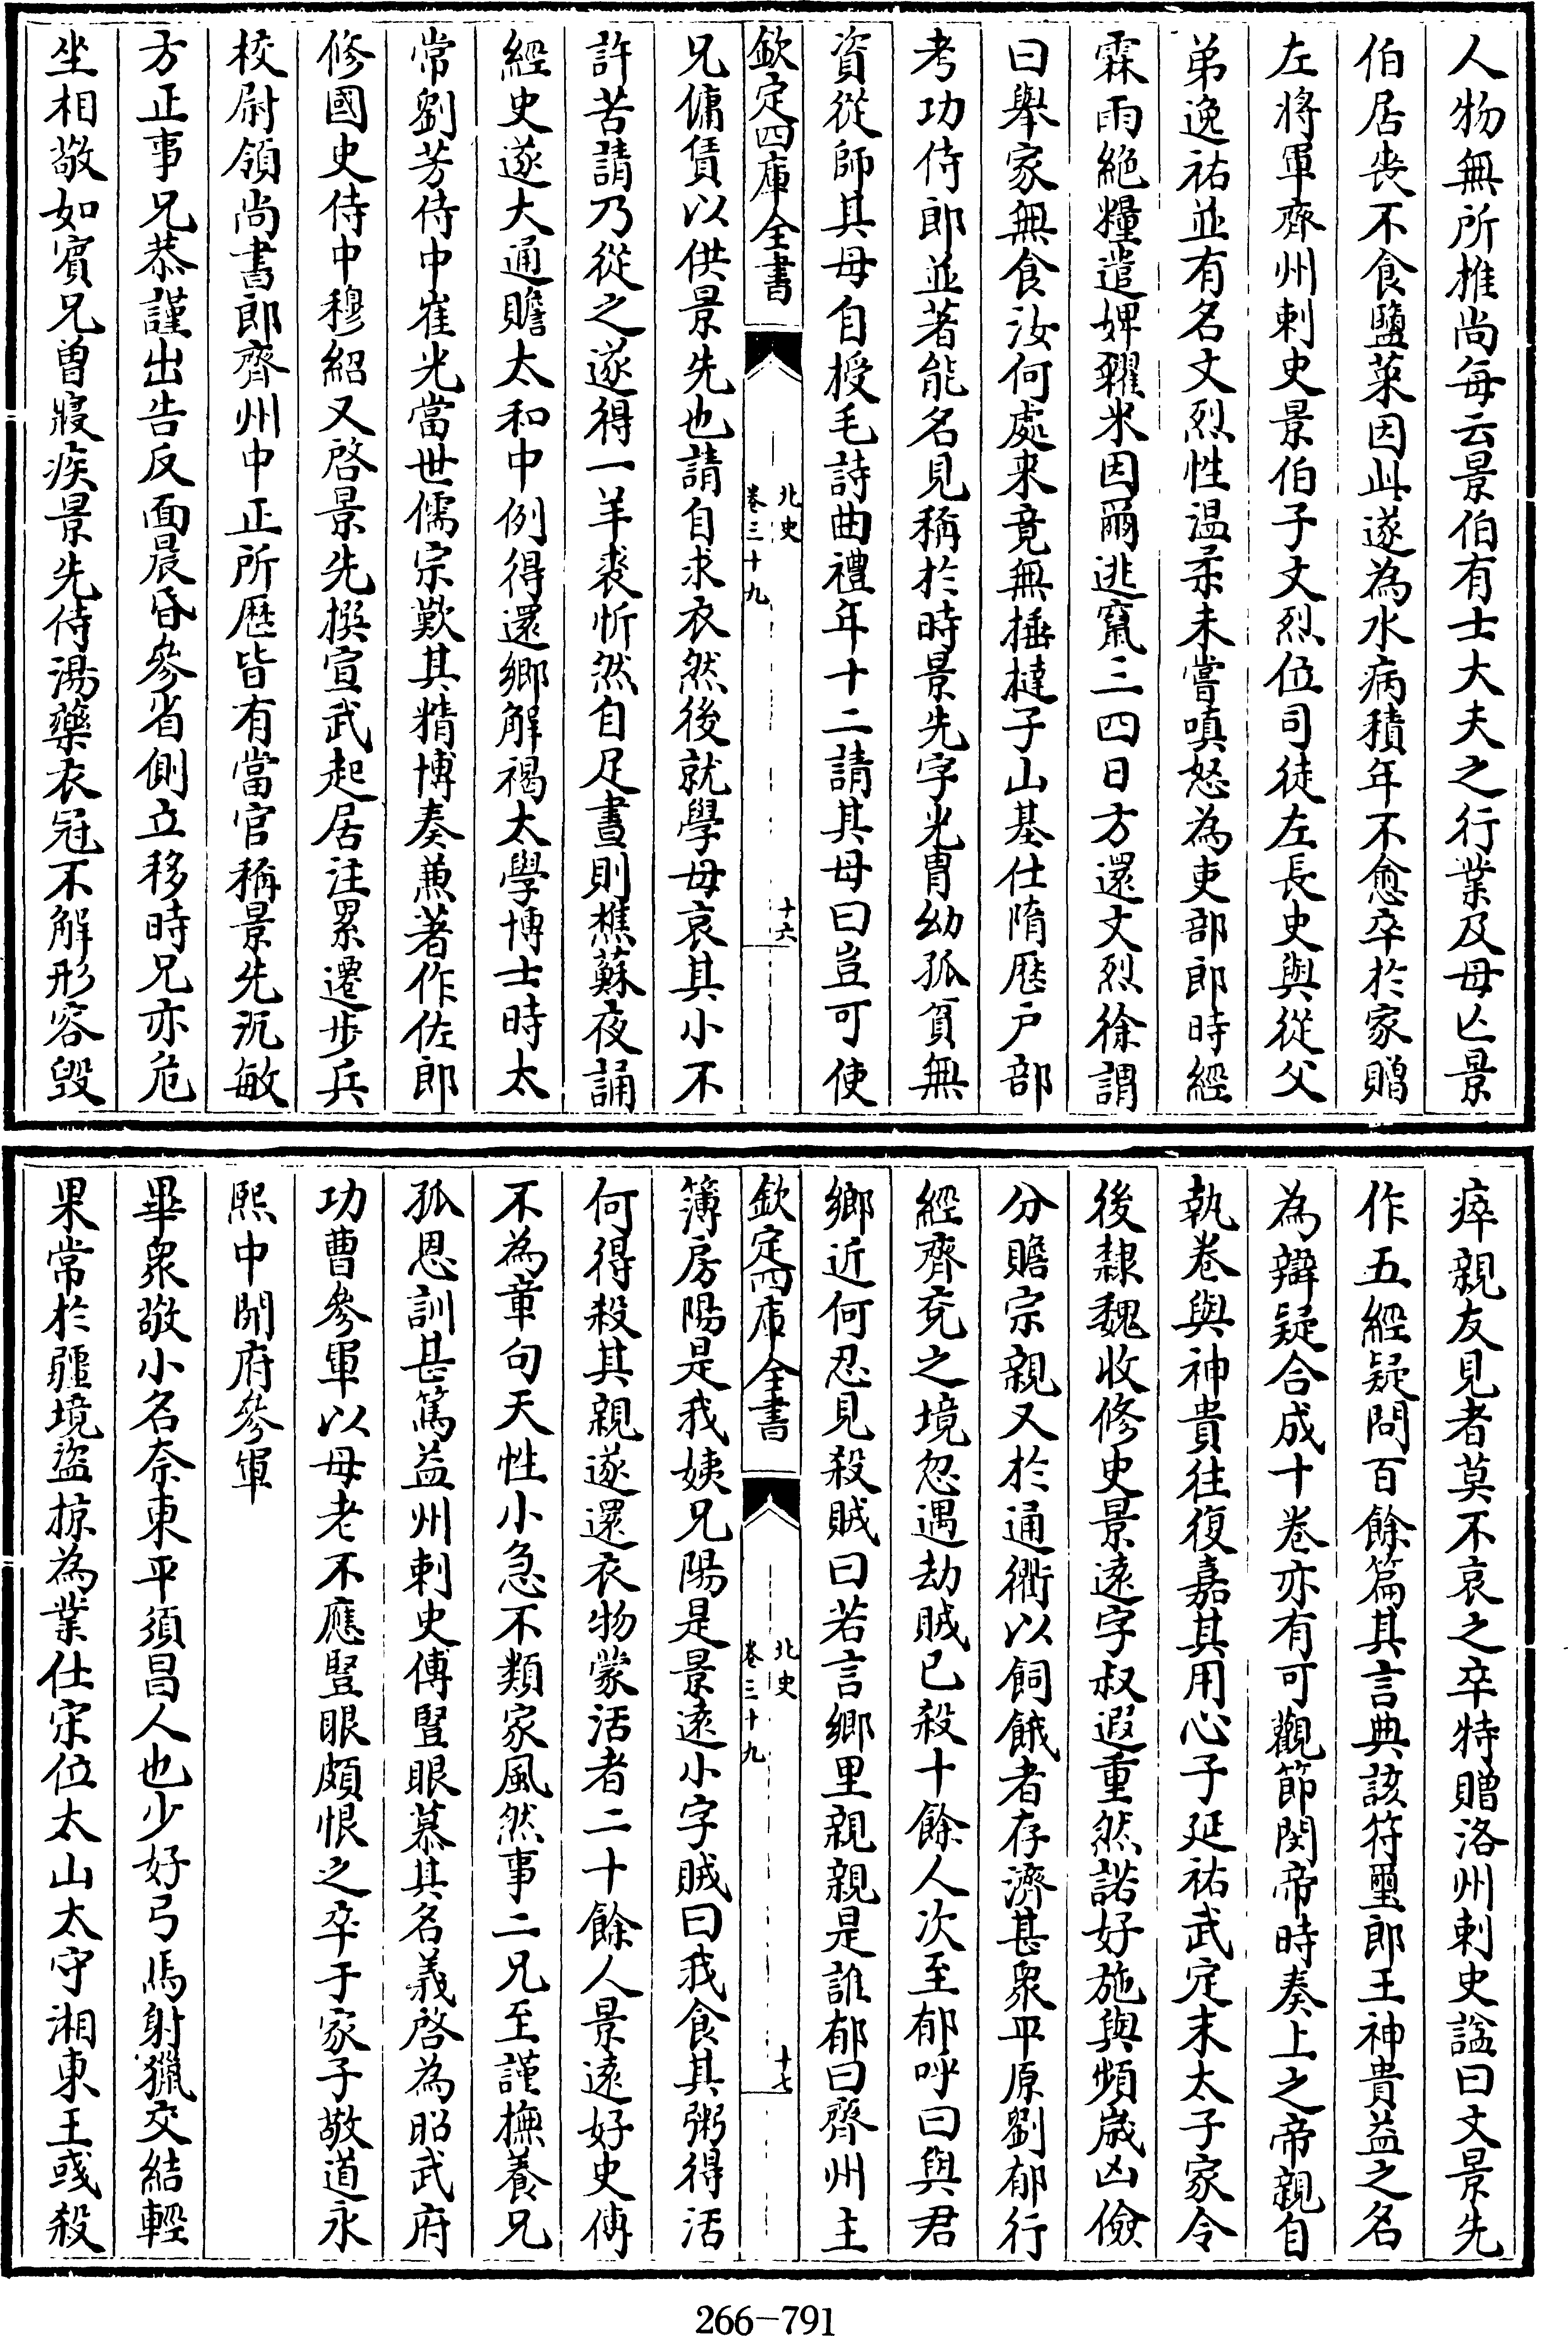 人物無所推尚每云景伯有士大夫之行業及母亡景
伯居喪不食鹽菜因此遂為水病積年不愈卒於家贈
左將軍齊州刺史景伯子文烈位司徒左長史與從父
弟逸祐並有名文烈性温柔未嘗嗔怒為吏部郎時經
霖雨絶糧遣婢糴米因爾逃竄三四日方還文烈徐謂
曰舉家無食汝何處来竟無捶撻子山基仕隋歴戸部
考功侍郎並著能名見稱於時景先字光胄幼孤貧無
資從師其母自授毛詩曲禮年十二請其母曰豈可使
欽定四庫全書
北史
卷三十九
十六
兄傭賃以供景先也請自求衣然後就學母哀其小不
許苦請乃從之遂得一羊裘忻然自足晝則樵蘇夜誦
經史遂大通贍太和中例得還鄉解褐太學博士時太
常劉芳侍中崔光當世儒宗歎其精博奏兼著作佐郎
修國史侍中穆紹又啓景先撰宣武起居注累遷步兵
校尉領尚書郎齊州中正所歴皆有當官稱景先沉敏
方正事兄恭謹出告反面晨昏參省側立移時兄亦危
坐相敬如賓兄曽寢疾景先侍湯藥衣冠不解形容毁
瘁親友見者莫不哀之卒特贈洛州刺史諡曰文景先
作五經疑問百餘篇其言典該符璽郎王神貴益之名
為辯疑合成十卷亦有可觀節閔帝時奏上之帝親自
執卷與神貴往復嘉其用心子延祐武定末太子家令
後隸魏收修史景遠字叔遐重然諾好施與頻嵗凶儉
分贍宗親又於通衢以飼餓者存濟甚衆平原劉郁行
經齊兗之境忽遇劫賊已殺十餘人次至郁呼曰與君
鄉近何忍見殺賊曰若言鄉里親親是誰郁曰齊州主
欽定四庫全書
北史
卷三十九
十七
簿房陽是我姨兄陽是景遠小字賊曰我食其粥得活
何得殺其親遂還衣物蒙活者二十餘人景遠好史傳
不為章句天性小急不類家風然事二兄至謹撫養兄
孤恩訓甚篤益州刺史傅豎眼慕其名義啓為昭武府
功曹參軍以母老不應豎眼頗恨之卒于家子敬道永
熙中開府參軍
畢衆敬小名奈東平須昌人也少好弓馬射獵交結輕
果常於疆境盜掠為業仕宋位太山太守湘東王彧殺
266-791